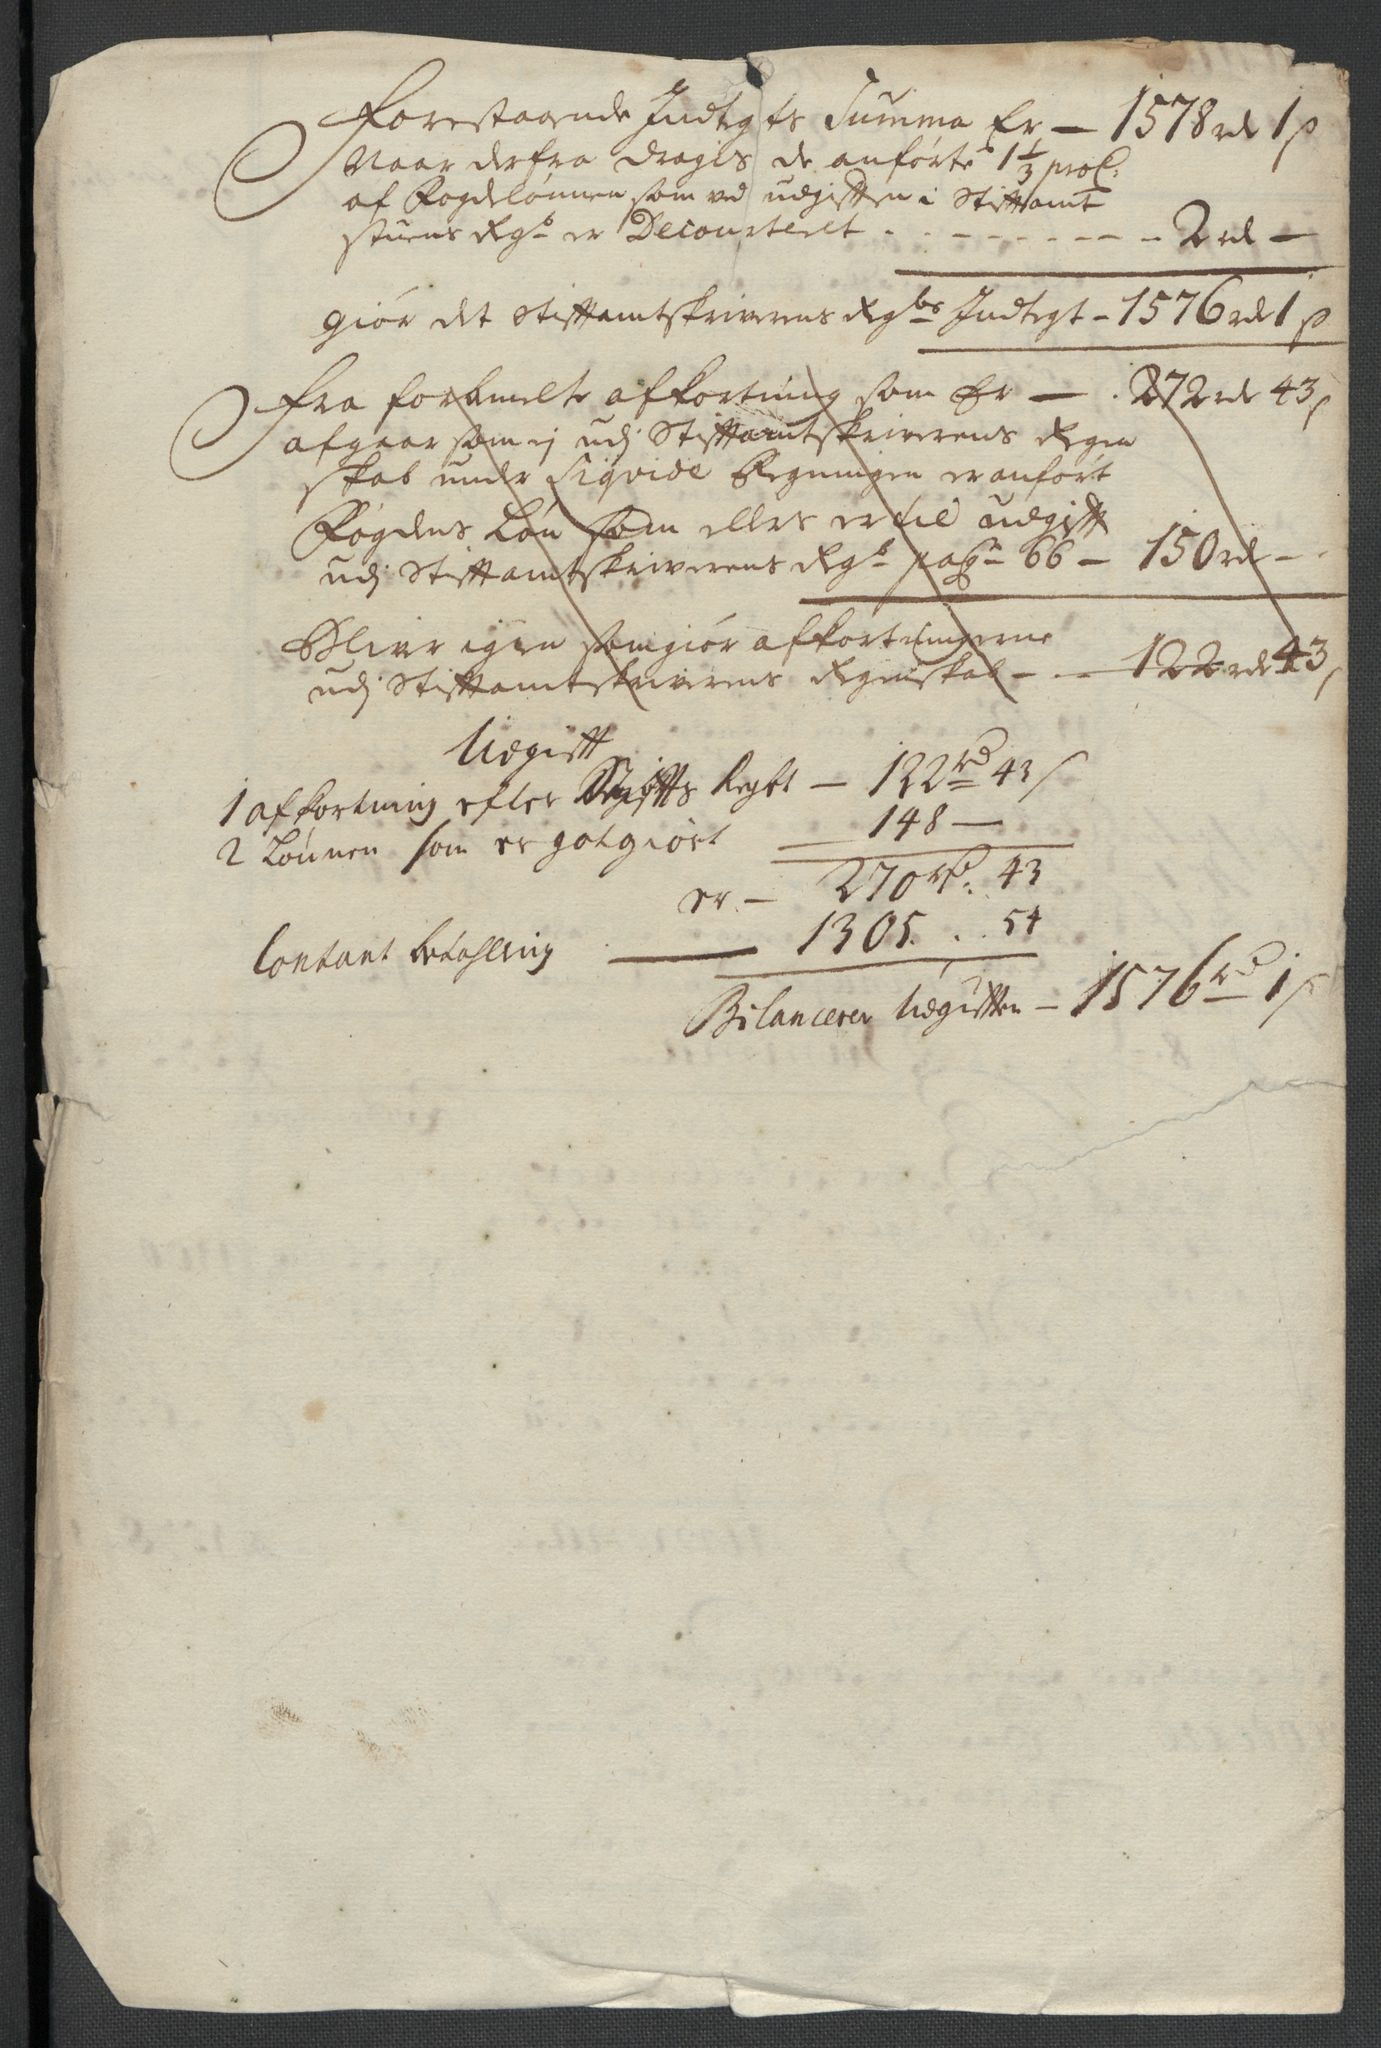 Forestaaende Indtegts Summa Er — 1578 rd 1 ß
Naar derfra dragis de anførte 1 1/3 proC:
af Fogdelønnen som ved udgifften i Stiftamt
stuens Regb er Decourteret . . - - - - - - - 2 rd —
giør det Stifftamtskrifverens Regbs Indtegt - 1576 rd 1 ß
Fra formelte afkortning som Er — . 272 rd 43 ß
afgaar som ej udj Stifftamtskrifverens Regen
skab under Liqvide Regningen er anført
Fogdens Løn som ellers er til udgifft
udj Stifftamtskrifverens Regb pag 66 — 150 rd - -
Blifver igien som giør afkortningerne
udj Stifftamtskrifverens Regenskab - . — 122 rd 43 ß
Udgifft
1 afkortning efter Regbt — 122 rd 43 ß
2 Lønnen som er gotgiort — 148 —
er — 270 rd: 43
Contant betahling — 1305. . . 54
Bilancerer Udgifften — 1576 rd 1 ß